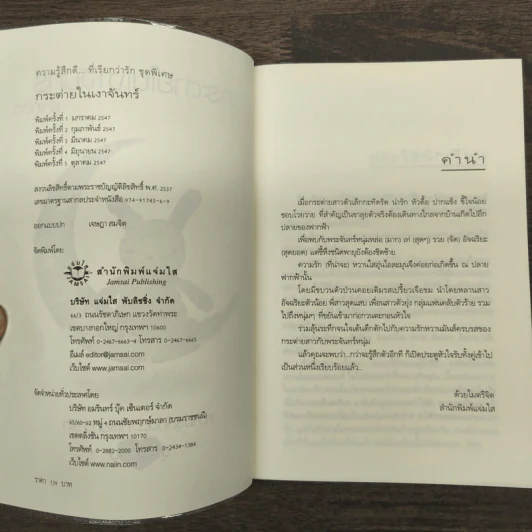 ความรู้สึกดี... ที่เรียกว่ารัก ชุดพิเศษ
กระต่ายในเงาจันทร์
พิมพ์ครั้งที่ 1 มกราคม 2547
พิมพ์ครั้งที่ 2 กุมภาพันธ์ 2547
พิมพ์ครั้งที่ 3 มีนาคม 2547
พิมพ์ครั้งที่ 4 มิถุนายน 2547
พิมพ์ครั้งที่ 5 ตุลาคม 2547
สงวนลิขสิทธิ์ตามพระราชบัญญัติลิขสิทธิ์ พ.ศ. 2537
เลขมาตรฐานสากลประจำหนังสือ 974-91745-6-9
ออกแบบปก เจษฎา สมจิต
จัดพิมพ์โดย
สำนักพิมพ์แจ่มใส
Jamsai Publishing
บริษัท แจ่มใส พับลิชชิ่ง จำกัด
66/3 ถนนรัชดาภิเษก แขวงวัดท่าพระ
เขตบางกอกใหญ่ กรุงเทพฯ 10600
โทรศัพท์ 0-2467-6663-4 โทรสาร 0-2467-6665
อีเมล์ editor@jamsai.com
เว็บไซต์ www.jamsai.com
จัดจำหน่ายทั่วประเทศโดย
บริษัท อมรินทร์ บุ๊ค เซ็นเตอร์ จำกัด
65/60-62 หมู่ 4 ถนนชัยพฤกษ์มาลา (บรมราชชนนี)
เขตตลิ่งชัน กรุงเทพฯ 10170
โทรศัพท์ 0-2882-2000 โทรสาร 0-2434-1384
เว็บไซต์ www.naiin.com
ราคา บาท
คำนำ
เมื่อกระต่ายสาวตัวเล็กกะทัดรัด น่ารัก หัวดื้อ ปากแข็ง ขี้ใจน้อย
ชอบโวยวาย ที่สำคัญเป็นขาลุยตัวจริงต้องเดินทางไกลจากบ้านเกิดไปอีก
ปลายของฟากฟ้า
เพื่อพบกับพระจันทร์หนุ่มหล่อ (มาก) เท่ (สุดๆ) รวย (จัด) อัจฉริยะ
(สุดยอด) แต่ขี้หึงชนิดพายุยังต้องชิดซ้าย
ความรัก (ที่น่าจะ) หวานใสอุ่นไอละมุนจึงค่อยก่อเกิดขึ้น ณ ปลาย
ฟากฟ้านั้น
โดยมีขบวนตัวป่วนคอยเติมรสเปรี้ยวเจือขม นำโดยหลานสาว
อัจฉริยะตัวน้อย พี่สาวสุดแสบ เพื่อนสาวตัวยุ่ง กลุ่มแฟนคลับตัวร้าย รวม
ไปถึงหนุ่มๆ ที่ขยันเข้ามาก่อกวนเตะถอนหัวใจ
ร่วมลุ้นระทึกจนใจเต้นตึกตักไปกับความรักหวานมันส์ครบรสของ
กระต่ายสาวกับพระจันทร์หนุ่ม
แล้วคุณจะพบว่า...กว่าจะรู้สึกตัวอีกที ก็เปิดประตูหัวใจรับทั้งคู่เข้าไป
เป็นส่วนหนึ่งเรียบร้อยแล้ว...
ด้วยไมตรีจิต
สำนักพิมพ์แจ่มใส